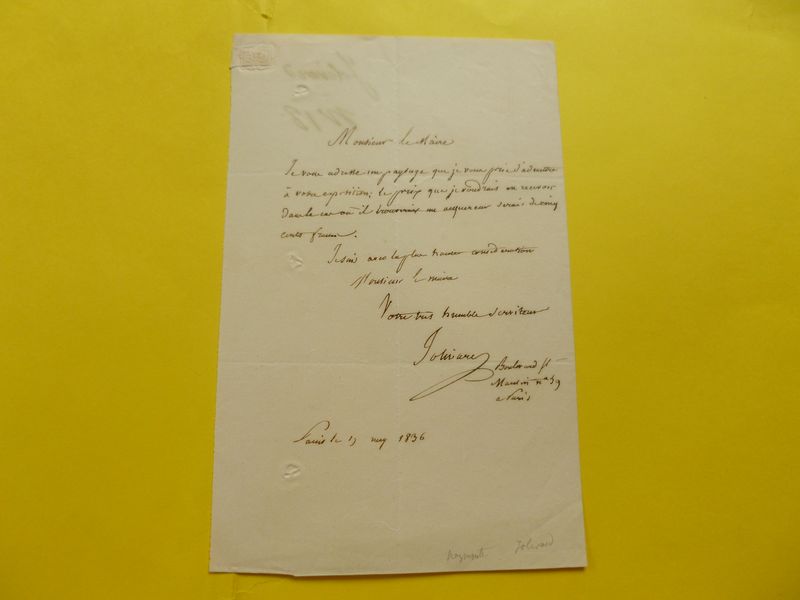 Monsieur le Maire
Je vous adresse un paysage que je vous prie d'admettre
à votre exposition; le prix que je voudrais en recevoir
dans le cas où il trouverait un acquereur serait de cinq
cents francs.
Je suis avec la plus haute considération
Monsieur le maire
Votre très humble serviteur
Jolivard
Boulevard St
Martin n°
a Paris
Paris le 1836
Jolivard